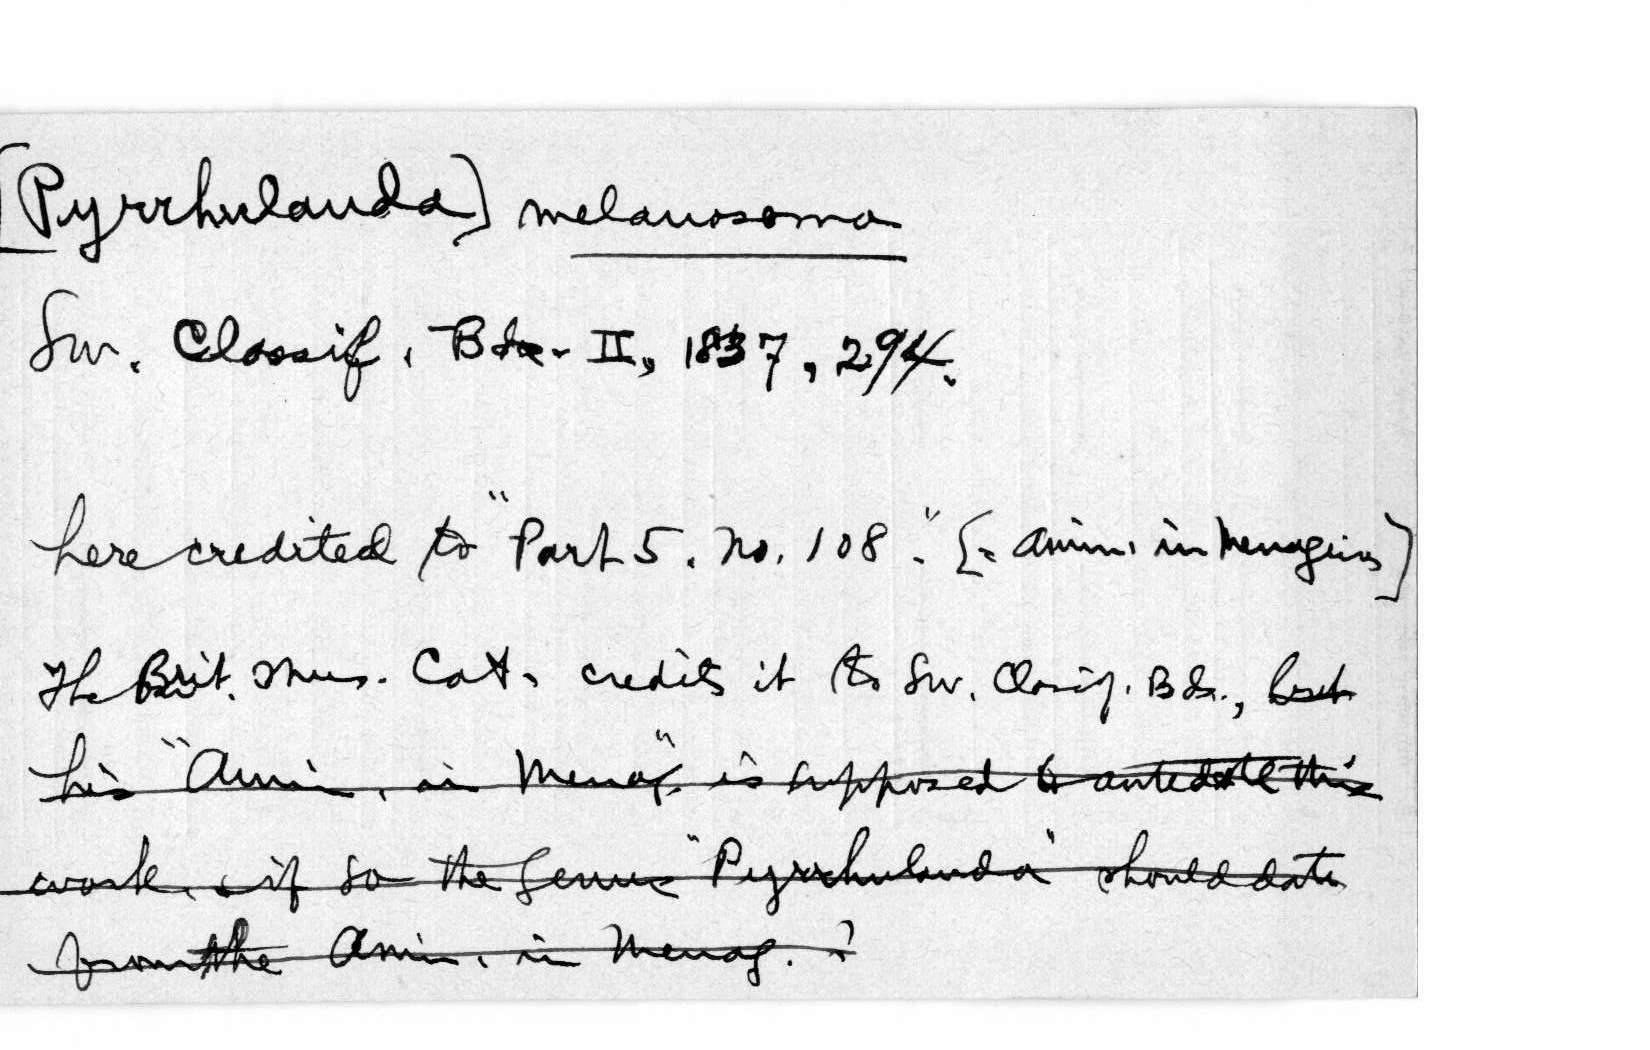 [Pyrrhulauda] melanosoma
Sw. Classif. Bds. II, 1837, 294.
here credited to "Part 5. No. 108." [= Anim. in Menageries]
The Brit. Mus. Cat. credits it to Sw. Classif. Bds., but
his "Anim. in Menag." is supposed to antedate this
work. if so the genus "Pyrrhulauda" should date
from the Anim. in Menag. ?